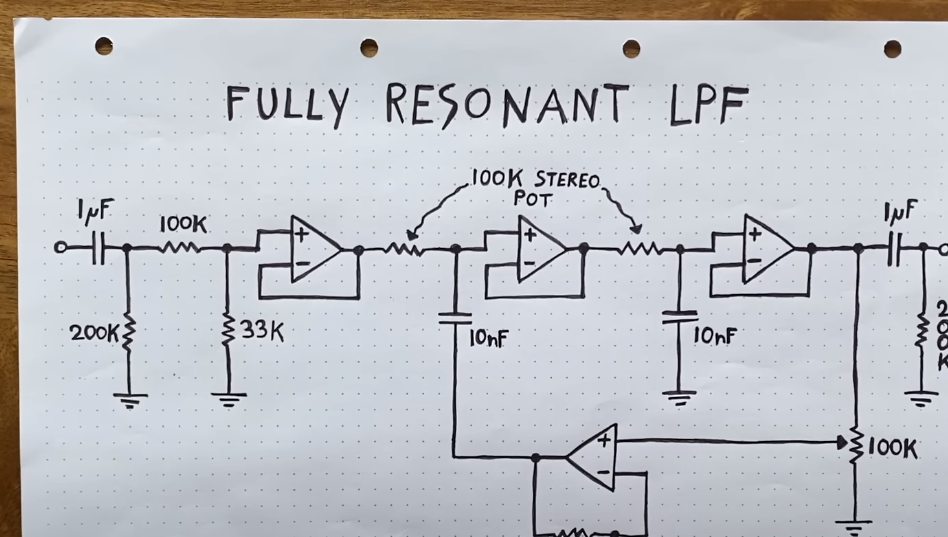 FULLY RESONANT LPF
100K STEREO
POT
1µF
100K
1µF
+
+
+
-
-
-
200K
33K
10nF
10nF
200K
+
100K
-